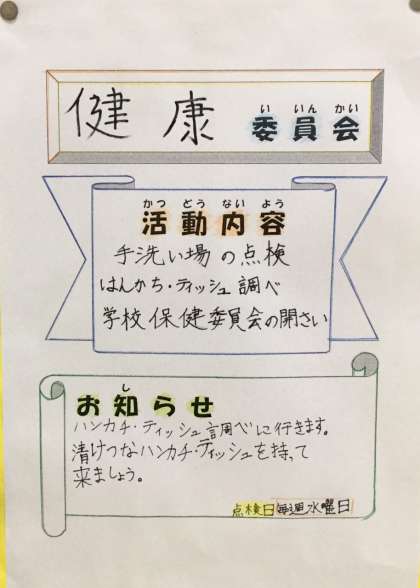 健康 委員会
い いん かい
かつ どう ない よう
活動内容
手洗い場の点検
はんかち・ティッシュ調べ
学校保健委員会の開さい
し
お知らせ
ハンカチ・ティッシュ調べに行きます。
清けつなハンカチ・ティッシュを持って
来ましょう。
点検日 毎週水曜日